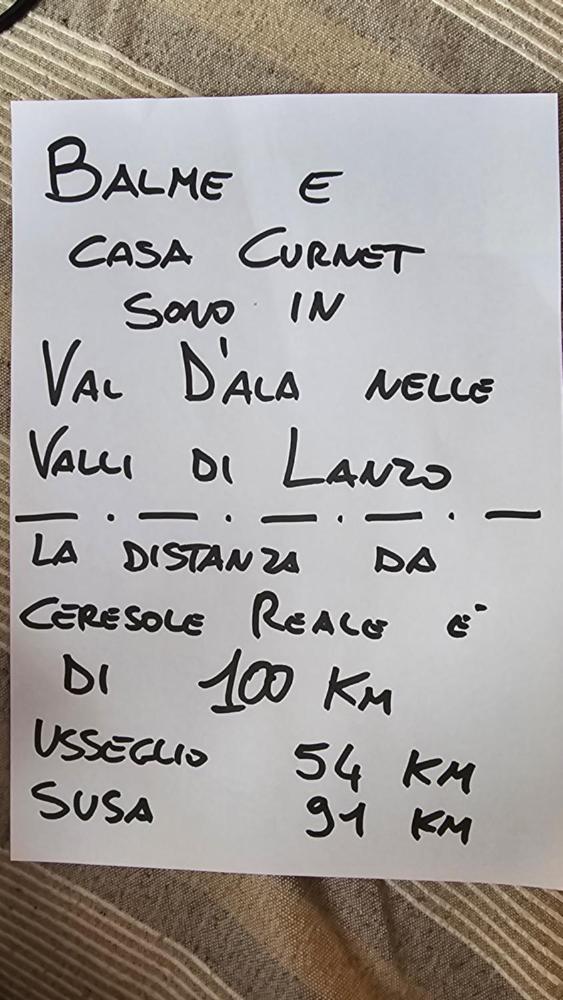 BALME E
CASA CURNET
SONO IN
VAL D'ALA NELLE
VALLI DI LANZO
LA DISTANZA DA
CERESOLE REALE E'
DI 100 KM
USSEGLIO 54 KM
SUSA 91 KM